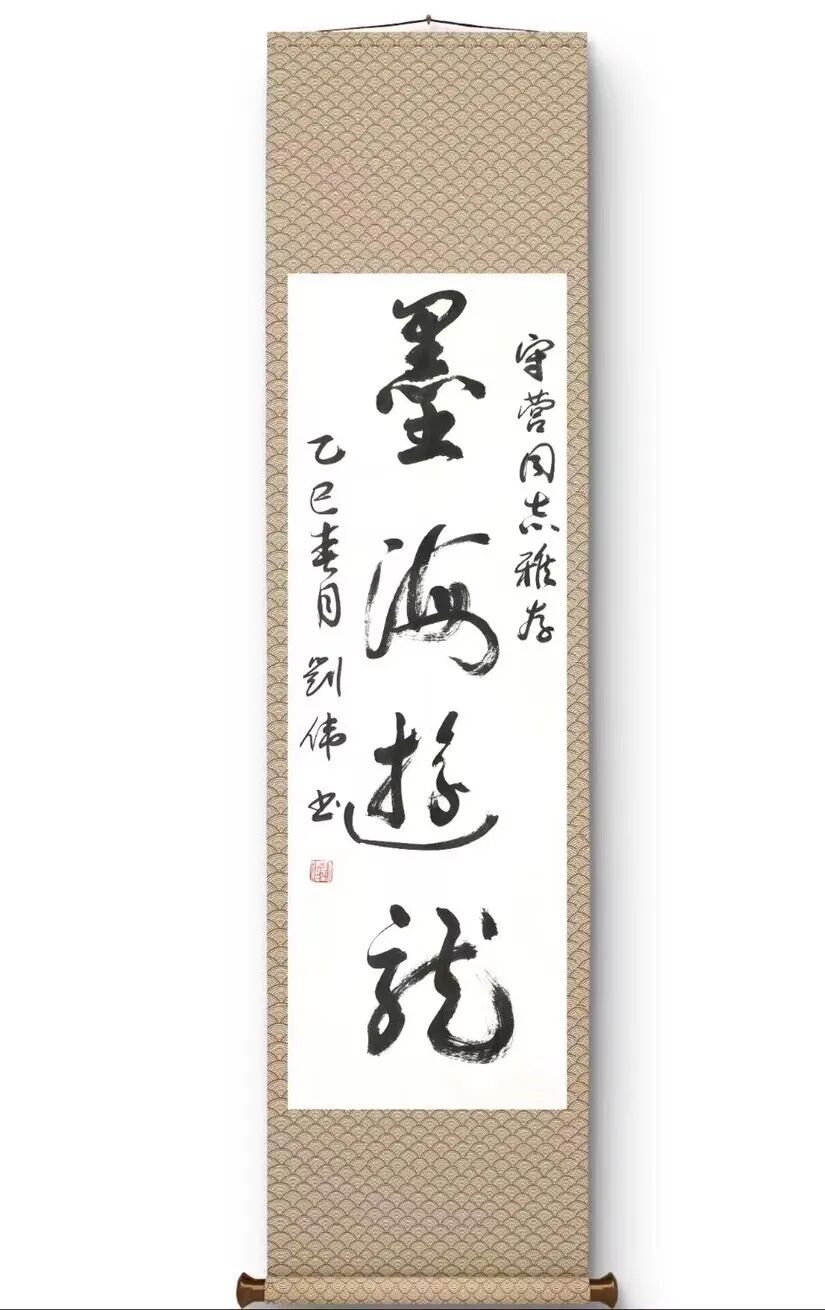 守营同志雅存
墨海遊龙
乙巳春月 刘伟书